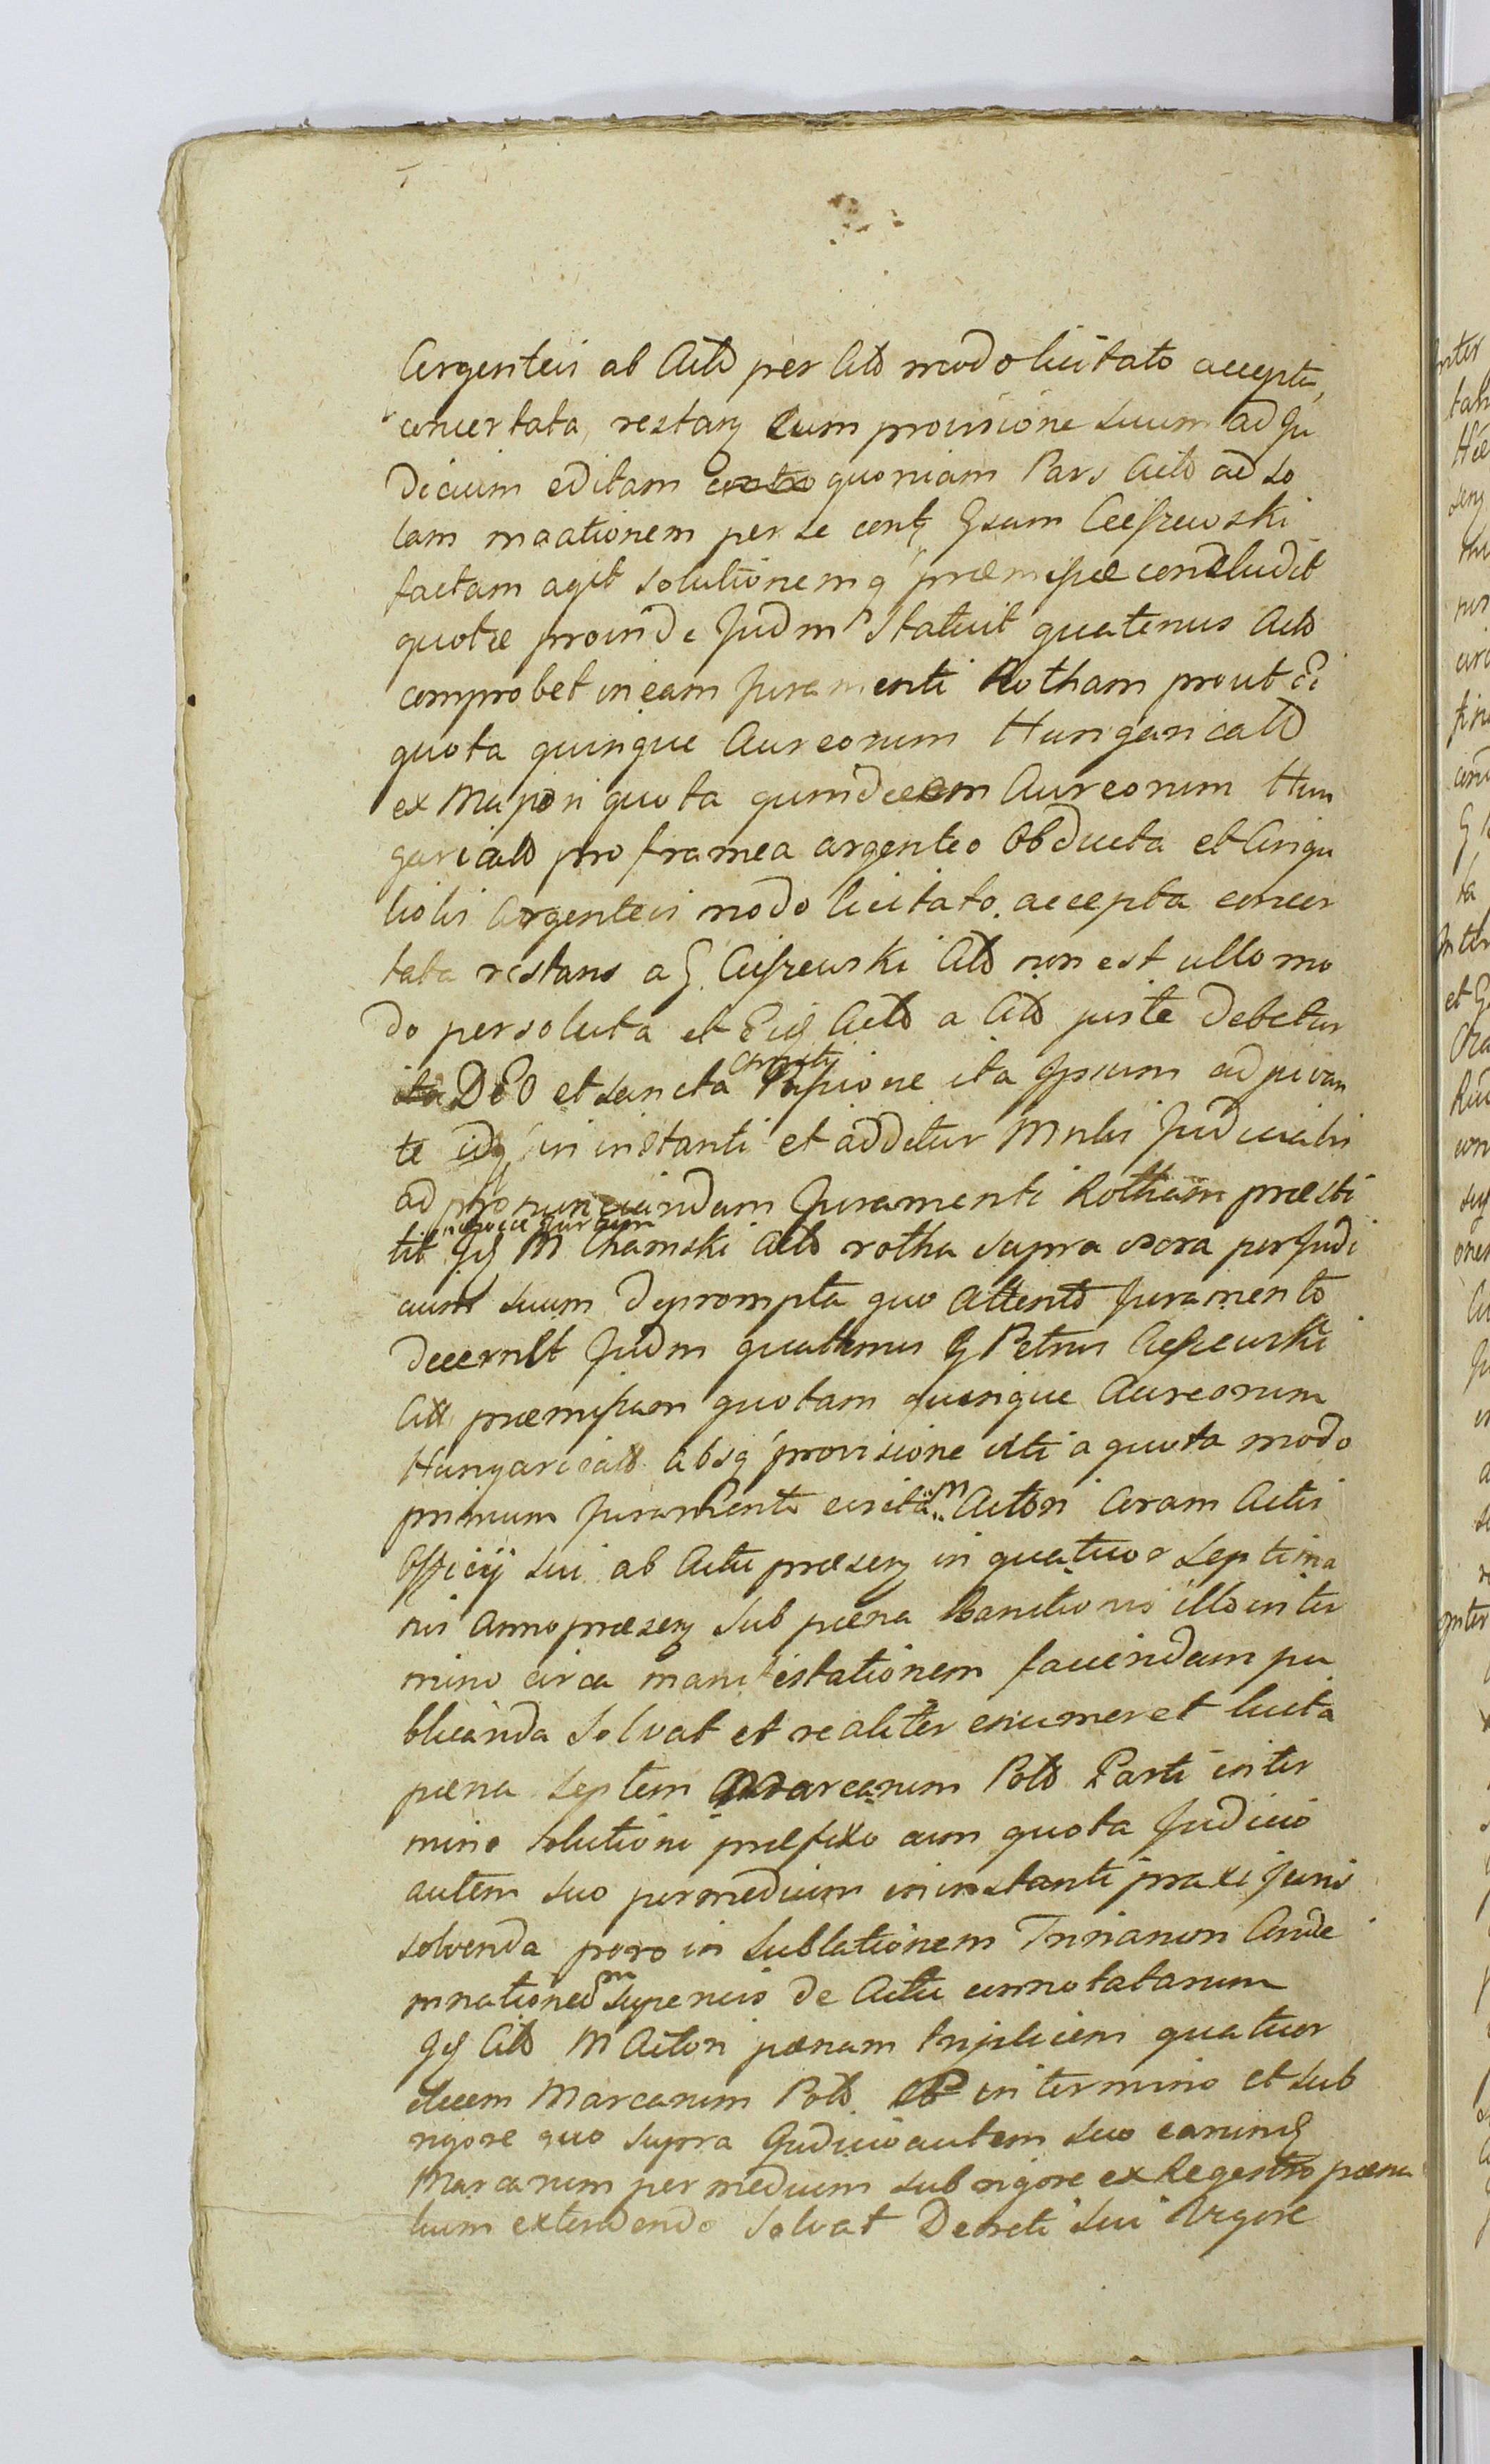 Argenteis ab Acto per Cito modo licitato accepta,
concertata, restan cum provisione suum ad Ju
dicium editam quoniam Pars Acto ad so
lam mactionem per se cont Gsum Ciefzewski
factam agit solutionem q præmissæ concludit
quotæ proinde Judm Statuit quatenus Acto
comprobet in eam Juramenti Rotham prout
quota quinque Aureorum Hungaricalo
ex Majori quota quindecem Aureorum Hun
garicalo pro framea argenteo obducta et Cingu
liolis Argenteis modo licitato accepta concer
tata restans a G. Ciefzewski Cito non est ullo mo
do persoluta et Acto a Cito juste debetur
ita DEO et sancta Christi Passione ita Ipsum adjuvan
te idq in instanti et additur Mnlis Judicialis
ad pronunciandum Juramenti Rotham præsti
tit M Chamski Acto rotha supra per Judi
cium suum deprompta quo Attento Juramento
decernit Judm quatenus G Petrus Ciefzewski
Citt præmissam quotam quinque Aureorum
Hungaricalo absq provisione uti a quota modo
primum Juramento evicta M Actori Coram Actis
Officij sui ab Actu præsen in quatuor Septima
nis Anno præsen sub pœna Bannitionis illo in ter
mino circa manifestationem faciendam pu
blicanda Solvat et realiter enumeret lucta
pœna septem Marcarum Polo Parti in ter
mino solutioni præfixo cum quota Judicio
autem suo per medium in instanti praxi Juris
solvenda porro in sublationem Trinarum Conde
mnationem superius de Actu connotatarum
Cito M Actori pœnam triplicem quatuor
decem Marcarum Polo in termino et sub
rigore quo supra Judicio autem suo earund
Marcarum per medium sub rigore ex Regestro pœna
lium extendendo Solvat Decreti sui Vigore